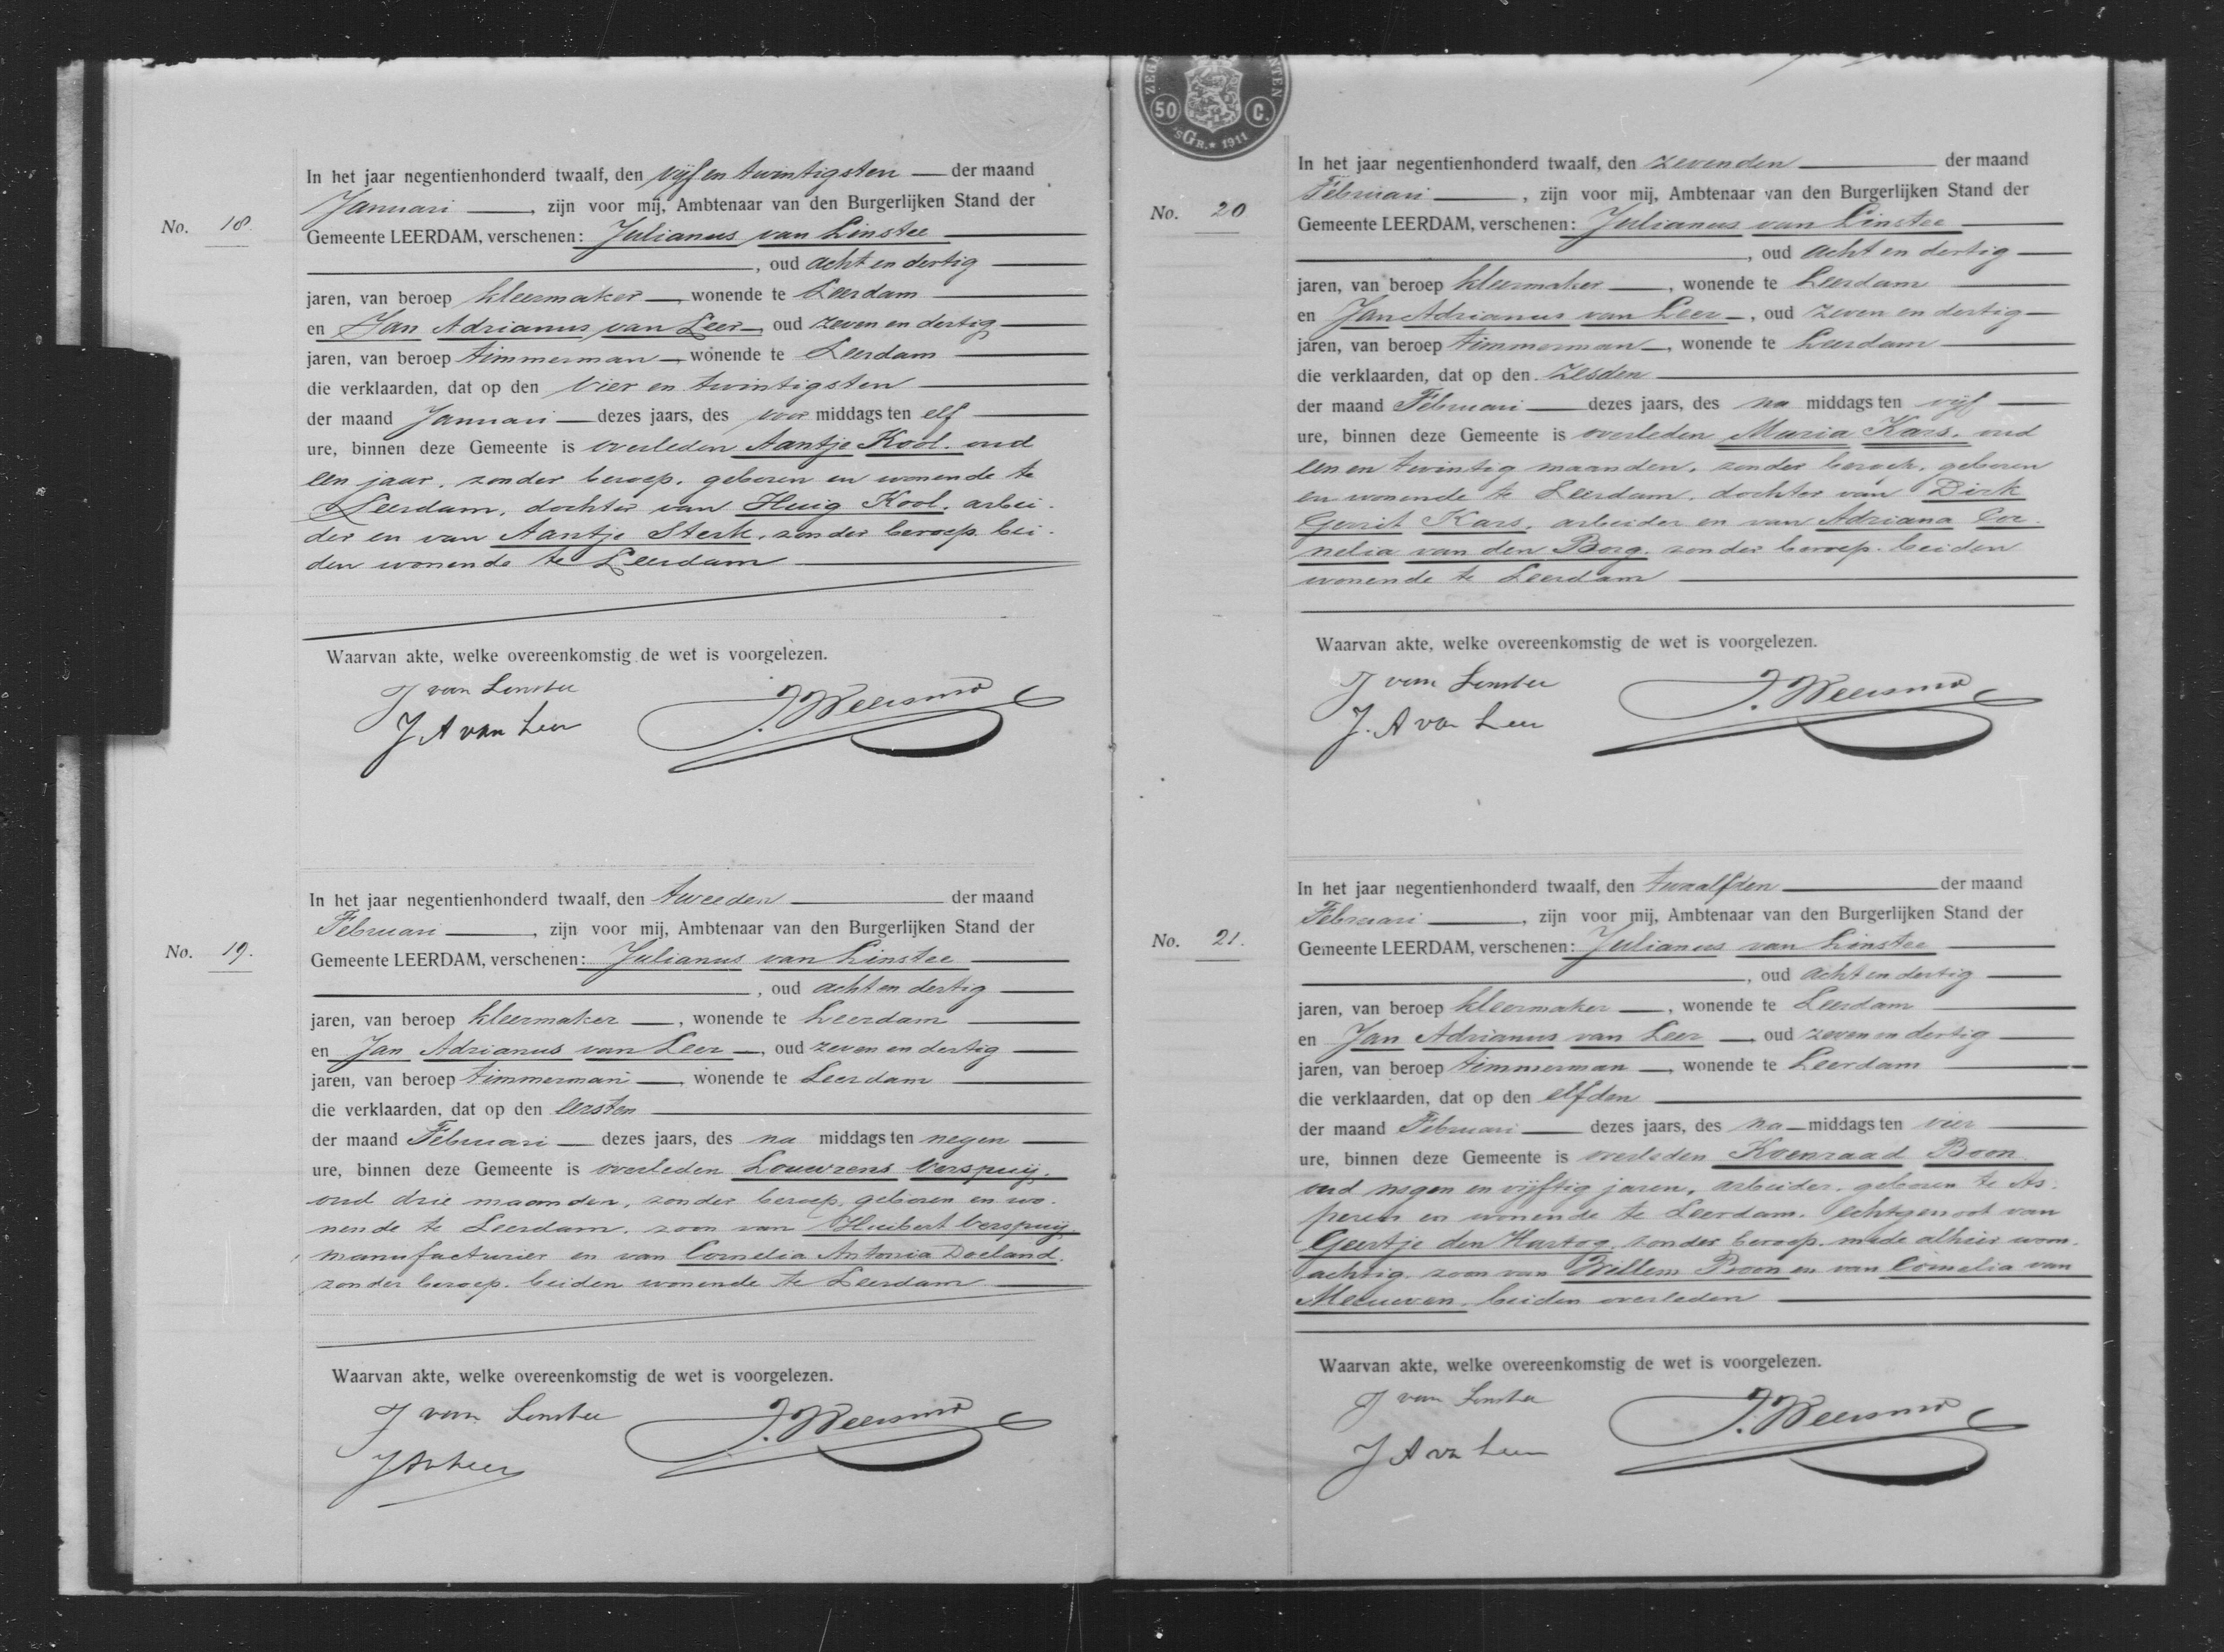 No. 18.
In het jaar negentienhonderd twaalf, den vijf en twintigsten — der maand
Januari —, zijn voor mij, Ambtenaar van den Burgerlijken Stand der
Gemeente LEERDAM, verschenen: Julianus van Linstee
, oud acht en dertig
jaren, van beroep kleermaker —, wonende te Leerdam
en Jan Adrianus van Leer —, oud zeven en dertig
jaren, van beroep timmerman —, wonende te Leerdam
die verklaarden, dat op den vier en twintigsten
der maand Januari — dezes jaars, des voor middags ten elf
ure, binnen deze Gemeente is overleden Aantje Kool, oud
een jaar, zonder beroep, geboren en wonende te
Leerdam, dochter van Huig Kool, arbei-
der en van Aantje Sterk, zonder beroep, bei-
den wonende te Leerdam
Waarvan akte, welke overeenkomstig de wet is voorgelezen.
J van Linstee
J A van Leer
No. 19.
In het jaar negentienhonderd twaalf, den tweeden — der maand
Februari —, zijn voor mij, Ambtenaar van den Burgerlijken Stand der
Gemeente LEERDAM, verschenen: Julianus van Linstee
, oud acht en dertig
jaren, van beroep kleermaker —, wonende te Leerdam
en Jan Adrianus van Leer —, oud zeven en dertig
jaren, van beroep timmerman —, wonende te Leerdam
die verklaarden, dat op den eersten
der maand Februari — dezes jaars, des na middags ten negen
ure, binnen deze Gemeente is overleden Louwrens Verspuij,
oud drie maanden, zonder beroep, geboren en wo-
nende te Leerdam, zoon van Huibert Verspuij,
manufacturier en van Cornelia Antonia Doeland,
zonder beroep, beiden wonende te Leerdam
Waarvan akte, welke overeenkomstig de wet is voorgelezen.
J van Linstee
J A v Leer
50 C.
'sGR. * 1911
No. 20
In het jaar negentienhonderd twaalf, den zevenden — der maand
Februari —, zijn voor mij, Ambtenaar van den Burgerlijken Stand der
Gemeente LEERDAM, verschenen: Julianus van Linstee
, oud acht en dertig
jaren, van beroep kleermaker —, wonende te Leerdam
en Jan Adrianus van Leer —, oud zeven en dertig
jaren, van beroep timmerman —, wonende te Leerdam
die verklaarden, dat op den zesden
der maand Februari — dezes jaars, des na middags ten vijf
ure, binnen deze Gemeente is overleden Maria Kars, oud
een en twintig maanden, zonder beroep, geboren
en wonende te Leerdam, dochter van Dirk
Gerrit Kars, arbeider en van Adriana Cor-
nelia van den Borg, zonder beroep, beiden
wonende te Leerdam
Waarvan akte, welke overeenkomstig de wet is voorgelezen.
J van Linstee
J. A van Leer
No. 21.
In het jaar negentienhonderd twaalf, den twaalfden — der maand
Februari —, zijn voor mij, Ambtenaar van den Burgerlijken Stand der
Gemeente LEERDAM, verschenen: Julianus van Linstee
, oud acht en dertig
jaren, van beroep kleermaker —, wonende te Leerdam
en Jan Adrianus van Leer —, oud zeven en dertig
jaren, van beroep timmerman —, wonende te Leerdam
die verklaarden, dat op den elfden
der maand Februari — dezes jaars, des na — middags ten vier
ure, binnen deze Gemeente is overleden Koenraad Boon
oud negen en vijftig jaren, arbeider, geboren te As-
peren en wonende te Leerdam, echtgenoot van
Geertje den Hartog, zonder beroep, mede alhier woon-
achtig, zoon van Willem Boon en van Cornelia van
Meeuwen, beiden overleden
Waarvan akte, welke overeenkomstig de wet is voorgelezen.
J van Linstee
J A van Leer